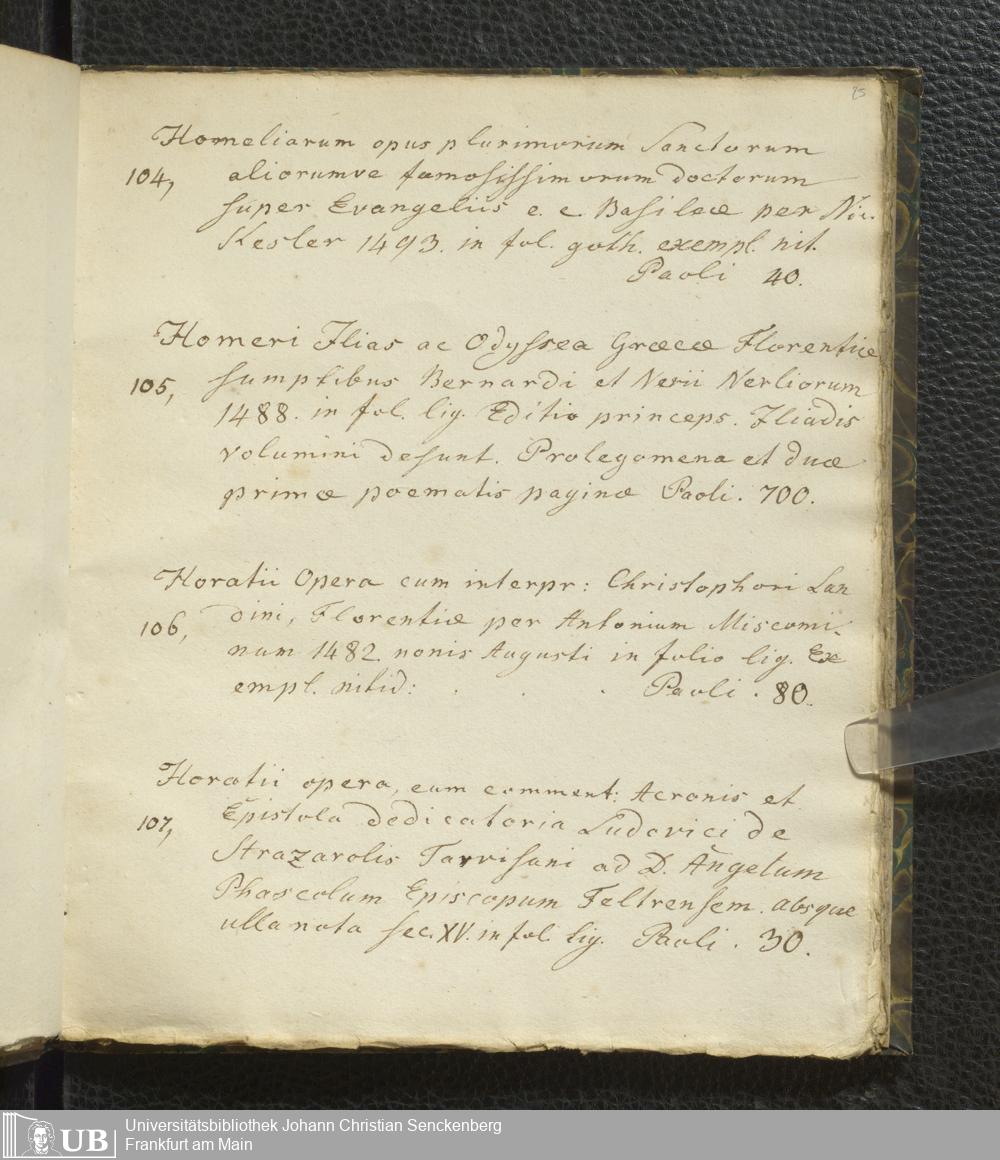 25
Homeliarum opus plurimorum Sanctorum
104, aliorumve famosissimorum doctorum
super Evangeliis e. c. Basileæ per Nic.
Kesler 1493. in fol. goth. exempl. nit.
Paoli 40.
Homeri Ilias ac Odyssea Græcæ Florentiæ
105, sumptibus Bernardi et Nerii Nerliorum
1488. in fol. lig. Editio princeps. Iliadis
volumini desunt. Prolegomena et duæ
primæ poematis paginæ Paoli. 700.
Horatii Opera cum interpr: Christophori Lan
106, dini, Florentiæ per Antonium Miscomi-
num 1482. nonis Augusti in folio lig. Ex
empl. nitid: . . . Paoli . 80.
Horatii opera, cum comment: Acronis et
107, Epistola dedicatoria Ludovici de
Strazarolis Tarvisani ad D. Angelum
Phaseolum Episcopum Feltrensem. absque
ulla nota sec. XV. in fol. lig. Paoli . 30.
UB
Universitätsbibliothek Johann Christian Senckenberg
Frankfurt am Main